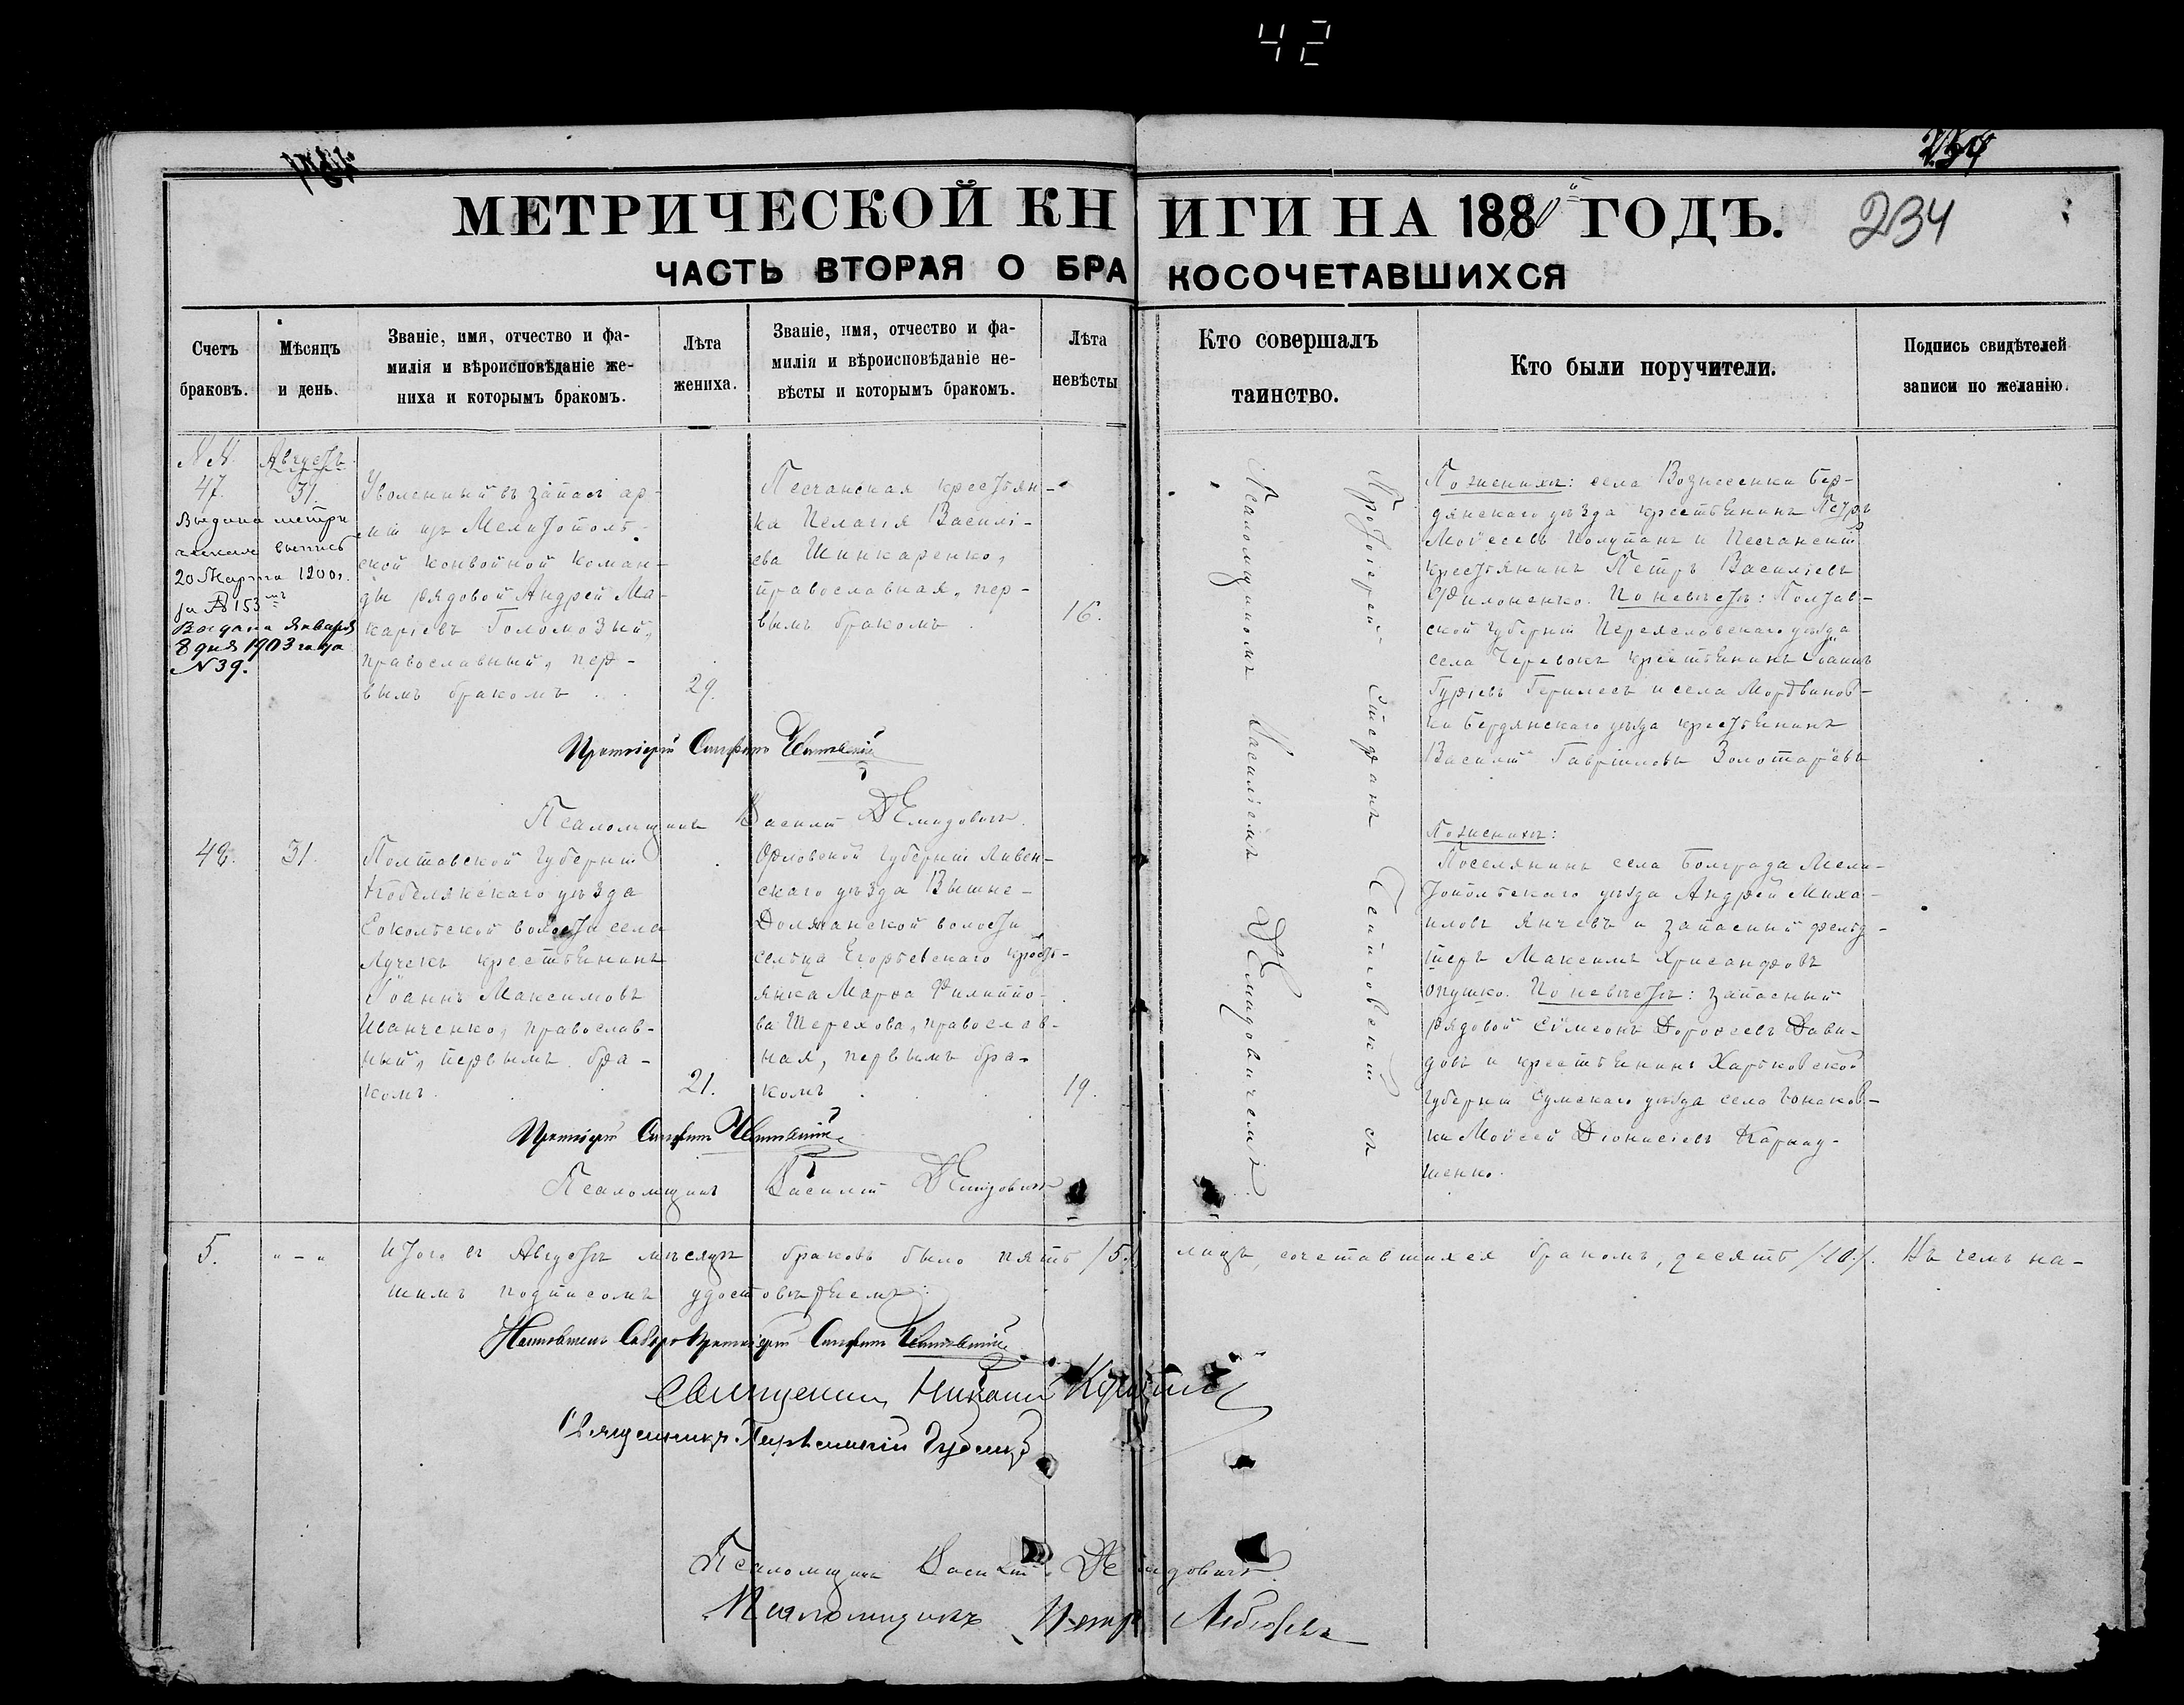 42
234
МЕТРИЧЕСКОЙ КНИГИ НА 188 ГОДЪ.
234
ЧАСТЬ ВТОРАЯ О БРАКОСОЧЕТАВШИХСЯ
Счетъ
браковъ.
Мѣсяцъ
и день.
Званіе, имя, отчество и фа-
милія и вѣроисповѣданіе же-
ниха и которымъ бракомъ.
Лѣта
жениха.
Званіе, имя, отчество и фа-
милія и вѣроисповѣданіе не-
вѣсты и которымъ бракомъ.
Лѣта
невѣсты
Кто совершалъ
таинство.
Кто были поручители.
Подпись свидѣтелей
записи по желанію.
Августъ.
47.
31.
Выдана метри
ческая выпись
20 Марта 1900 г.
за № 153
Выдана Января
8 дня 1903 года
№ 39.
Уволенный въ запасъ ар-
міи изъ Мелитополь-
ской конвойной коман-
ды рядовой Андрей Ма-
каріевъ Голомозый,
православный, пер-
вымъ бракомъ
29.
Песчанская крестьян-
ка Пелагія Василі-
ева Шинкаренко,
православная, пер-
вымъ бракомъ
16.
Протоіерей Стефанъ
Псаломщикъ Василій Демидовичъ.
Протоіерей Стефанъ съ
Псаломщикомъ Василіемъ Демидовичемъ
По женихѣ: села Вознесенки Бер-
дянскаго уѣзда крестьянинъ Петръ
Моѵсеевъ Полупанъ и Песчанскій
крестьянинъ Петръ Василіевъ
Филоненко. По невѣстѣ: Полтав-
ской губерніи Переяславскаго уѣзда
села крестьянинъ Іоаннъ
Гуріевъ и села Мордвинов-
ки Бердянскаго уѣзда крестьянинъ
Василій Гавріиловъ Золотарёвъ
48.
31.
Полтавской губерніи
Кобелякскаго уѣзда
волости села
Лучекъ крестьянинъ
Іоаннъ Максимовъ
Иванченко, православ-
ный, первымъ бра-
комъ
21.
Орловской губерніи Ливен-
скаго уѣзда Вышне-
Должанской волости
сельца Егорьевскаго кресть-
янка Марѳа Филиппо-
ва Шерехова, православ-
ная, первымъ бра-
комъ
19.
Протоіерей Стефанъ
Псаломщикъ Василій Демидовичъ
По женихѣ:
Поселянинъ села Болграда Мели-
топольскаго уѣзда Андрей Миха-
иловъ Янчевъ и запасный фельд-
шеръ Максимъ Хрисанфовъ
Опушко. По невѣстѣ: запасный
рядовой Сѵмеонъ Дороѳеевъ Дави-
довъ и крестьянинъ Харьковской
губерніи Сумскаго уѣзда села
ки Моѵсей Діонисіевъ
шенко.
5.
" – "
Итого въ Августѣ мѣсяцѣ браковъ было пять /5/. лицъ, сочетавшихся бракомъ, десять /10/. Въ чемъ на-
шимъ подписомъ удостовѣряемъ:
Настоятель Собора Протоіерей Стефанъ
Священникъ Николай
Священникъ
Псаломщикъ Василій Демидовичъ.
Псаломщикъ Петръ